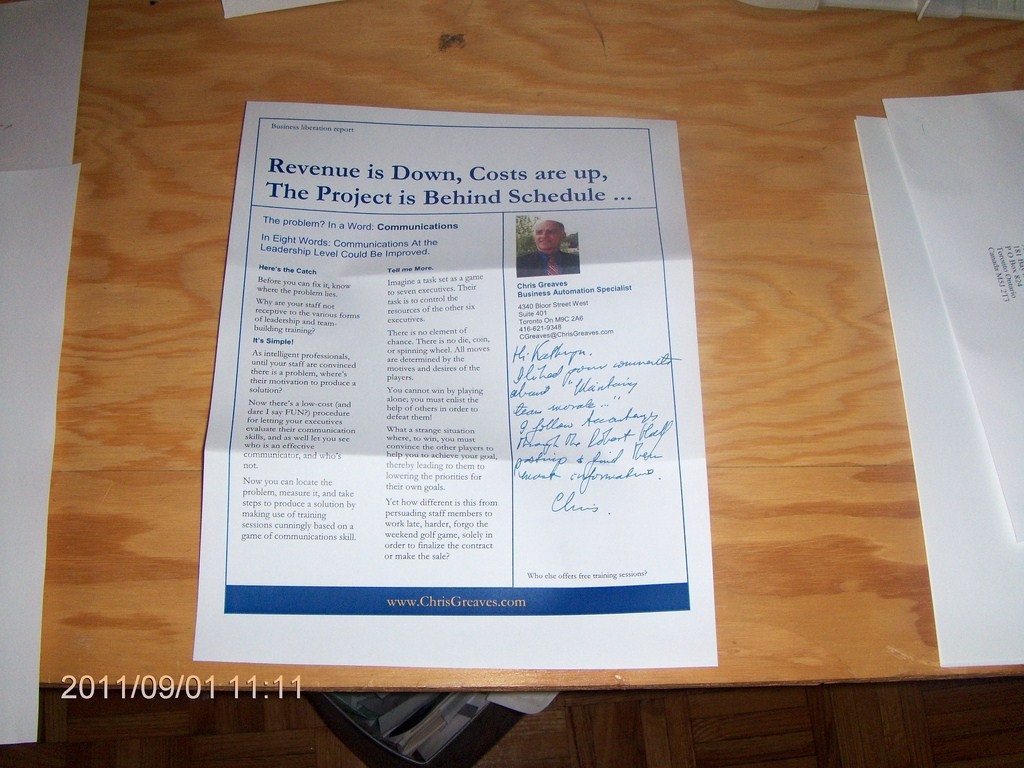 Business liberation report
Revenue is Down, Costs are up,
The Project is Behind Schedule ...
The problem? In a Word: Communications
In Eight Words: Communications At the
Leadership Level Could Be Improved.
Here's the Catch
Before you can fix it, know
where the problem lies.
Why are your staff not
receptive to the various forms
of leadership and team-
building training?
It's Simple!
As intelligent professionals,
until your staff are convinced
there is a problem, where's
their motivation to produce a
solution?
Now there's a low-cost (and
dare I say FUN?) procedure
for letting your executives
evaluate their communication
skills, and as well let you see
who is an effective
communicator, and who's
not.
Now you can locate the
problem, measure it, and take
steps to produce a solution by
making use of training
sessions cunningly based on a
game of communications skill.
Tell me More.
Imagine a task set as a game
to seven executives. Their
task is to control the
resources of the other six
executives.
There is no element of
chance. There is no die, coin,
or spinning wheel. All moves
are determined by the
motives and desires of the
players.
You cannot win by playing
alone; you must enlist the
help of others in order to
defeat them!
What a strange situation
where, to win, you must
convince the other players to
help you to achieve your goal,
thereby leading to them to
lowering the priorities for
their own goals.
Yet how different is this from
persuading staff members to
work late, harder, forgo the
weekend golf game, solely in
order to finalize the contract
or make the sale?
Chris Greaves
Business Automation Specialist
4340 Bloor Street West
Suite 401
Toronto On M9C 2A6
416-621-9348
CGreaves@ChrisGreaves.com
Hi Kathryn.
I liked your comments
about "Maintaing
team morale..."
I follow
through the Robert Half
postings & find them
most informative.
Chris.
Who else offers free training sessions?
www.ChrisGreaves.com
P O Box 824
Toronto Ontario
Canada M5J 2T3
2011/09/01 11:11